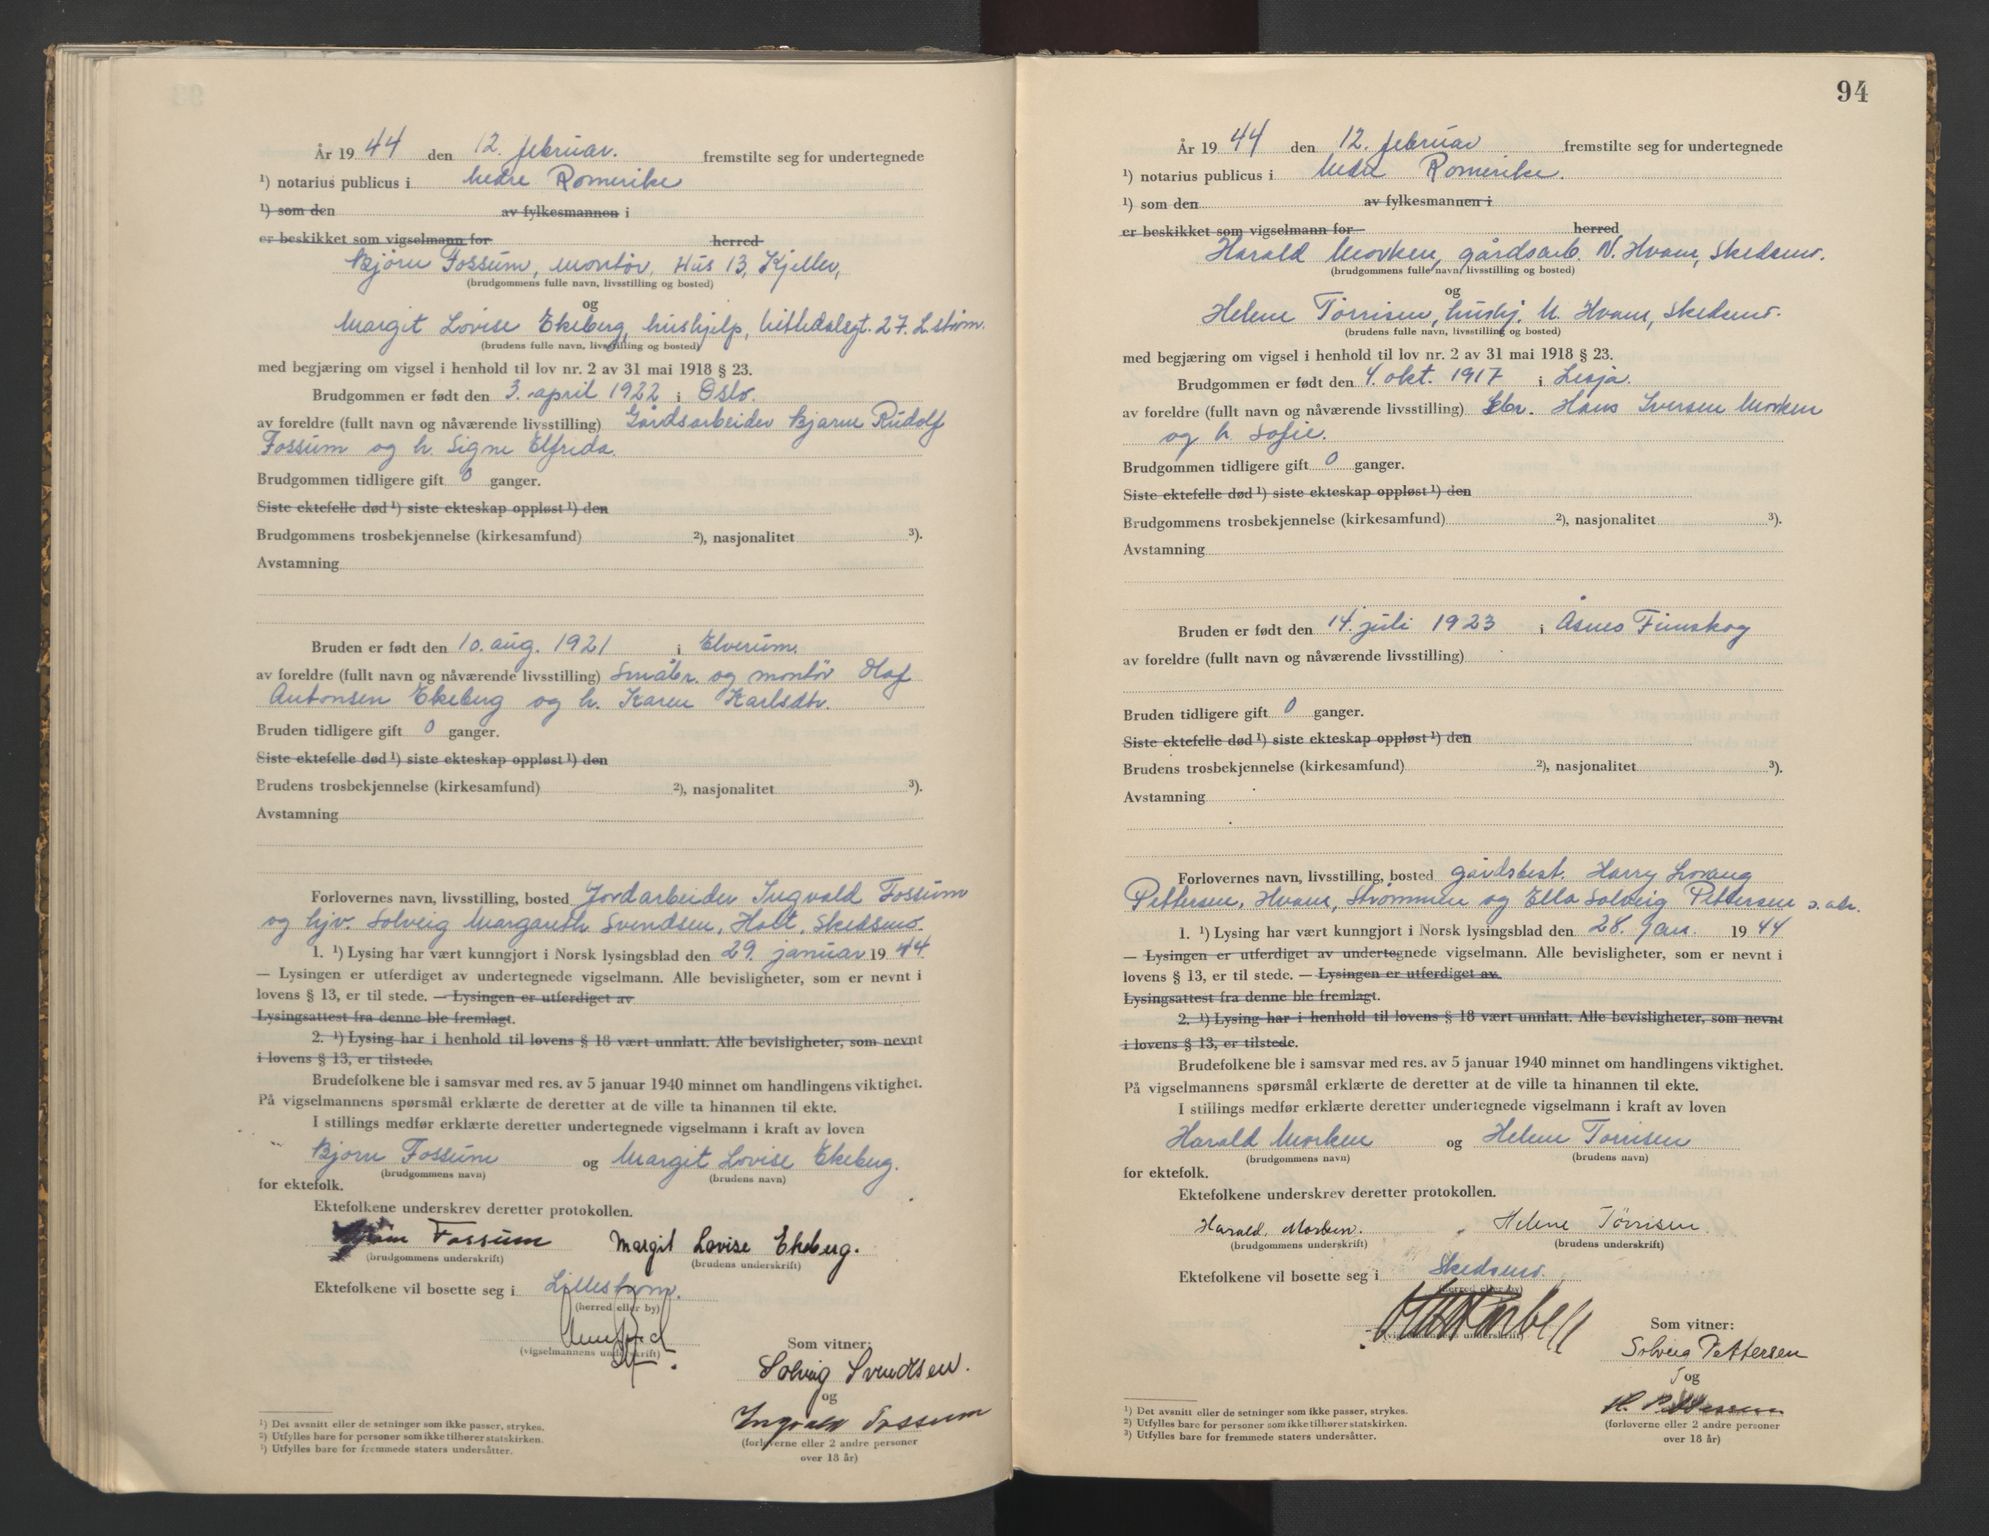 År 1944 den 12. februar. fremstilte seg for undertegnede
¹) notarius publicus i Nedre Romerike
¹) som den av fylkesmannen i
er beskikket som vigselmann for herred
Bjørn Fossum, montør, Hus 13, Kjeller,
(brudgommens fulle navn, livsstilling og bosted)
og
Margit Lovise Ekeberg, hushjelp, 27. L.strøm.
(brudens fulle navn, livsstilling og bosted)
med begjæring om vigsel i henhold til lov nr. 2 av 31 mai 1918 § 23.
Brudgommen er født den 3. april 1922 i Oslo.
av foreldre (fullt navn og nåværende livsstilling) Gårdsarbeider Bjarne Rudolf
Fossum og h. Signe Elfrida.
Brudgommen tidligere gift 0 ganger.
Siste ektefelle død ¹) siste ekteskap oppløst ¹) den
Brudgommens trosbekjennelse (kirkesamfund) ²), nasjonalitet ³).
Avstamning
Bruden er født den 10. aug. 1921 i Elverum.
av foreldre (fullt navn og nåværende livsstilling) Småbr. og montør Olaf
Antonsen Ekeberg og h. Karen Karlsdtr.
Bruden tidligere gift 0 ganger.
Siste ektefelle død ¹) siste ekteskap oppløst ¹) den
Brudens trosbekjennelse (kirkesamfund) ²), nasjonalitet ³).
Avstamning
Forlovernes navn, livsstilling, bosted Jordarbeider Ingvald Fossum
og hjv. Solveig Margareth Svendsen, Holt, Skedsmo.
1. ¹) Lysing har vært kunngjort i Norsk lysingsblad den 29. januar 1944.
— Lysingen er utferdiget av undertegnede vigselmann. Alle bevisligheter, som er nevnt i
lovens § 13, er til stede. — Lysingen er utferdiget av
Lysingsattest fra denne ble fremlagt.
2. ¹) Lysing har i henhold til lovens § 18 vært unnlatt. Alle bevisligheter, som nevnt
i lovens § 13, er tilstede.
Brudefolkene ble i samsvar med res. av 5 januar 1940 minnet om handlingens viktighet.
På vigselmannens spørsmål erklærte de deretter at de ville ta hinannen til ekte.
I stillings medfør erklærte deretter undertegnede vigselmann i kraft av loven
Bjørn Fossum og Margit Lovise Ekeberg.
(brudgommens navn) (brudens navn)
for ektefolk.
Ektefolkene underskrev deretter protokollen.
Bjørn Fossum Margit Lovise Ekeberg.
(brudgommens underskrift) (brudens underskrift)
Ektefolkene vil bosette seg i Lillestrøm.
(herred eller by)
(vigselmannens underskrift)
Som vitner:
Solveig Svendsen.
og
Ingvald Fossum
(forloverne eller 2 andre personer
over 18 år)
¹) Det avsnitt eller de setninger som ikke passer, strykes.
²) Utfylles bare for personer som ikke tilhører statskirken.
¹) Utfylles bare for fremmede staters undersåtter.
94
År 1944 den 12. februar fremstilte seg for undertegnede
¹) notarius publicus i Nedre Romerike.
¹) som den av fylkesmannen i
er beskikket som vigselmann for herred
Harald Morken, gårdsarb. N. Hvam, Skedsmo.
(brudgommens fulle navn, livsstilling og bosted)
og
Helene Tørrisen, hushj. N. Hvam, Skedsmo.
(brudens fulle navn, livsstilling og bosted)
med begjæring om vigsel i henhold til lov nr. 2 av 31 mai 1918 § 23.
Brudgommen er født den 4. okt. 1917 i Lesja.
av foreldre (fullt navn og nåværende livsstilling) Hans Iversen Morken
og h. Sofie.
Brudgommen tidligere gift 0 ganger.
Siste ektefelle død ¹) siste ekteskap oppløst ¹) den
Brudgommens trosbekjennelse (kirkesamfund) ²), nasjonalitet ³).
Avstamning
Bruden er født den 14. juli 1923 i Åsnes Finnskog
av foreldre (fullt navn og nåværende livsstilling)
Bruden tidligere gift 0 ganger.
Siste ektefelle død ¹) siste ekteskap oppløst ¹) den
Brudens trosbekjennelse (kirkesamfund) ²), nasjonalitet ³).
Avstamning
Forlovernes navn, livsstilling, bosted gårdsbest. Harry Lovang
Pettersen, Hvam, Strømmen og Ella Solveig Pettersen s. adr.
1. ¹) Lysing har vært kunngjort i Norsk lysingsblad den 28. jan. 1944
— Lysingen er utferdiget av undertegnede vigselmann. Alle bevisligheter, som er nevnt i
lovens § 13, er til stede. — Lysingen er utferdiget av
Lysingsattest fra denne ble fremlagt.
2. ¹) Lysing har i henhold til lovens § 18 vært unnlatt. Alle bevisligheter, som nevnt
i lovens § 13, er tilstede.
Brudefolkene ble i samsvar med res. av 5 januar 1940 minnet om handlingens viktighet.
På vigselmannens spørsmål erklærte de deretter at de ville ta hinannen til ekte.
I stillings medfør erklærte deretter undertegnede vigselmann i kraft av loven
Harald Morken og Helene Tørrisen
(brudgommens navn) (brudens navn)
for ektefolk.
Ektefolkene underskrev deretter protokollen.
Harald Morken. Helene Tørrisen.
(brudgommens underskrift) (brudens underskrift)
Ektefolkene vil bosette seg i Skedsmo.
(herred eller by)
(vigselmannens underskrift)
Som vitner:
Solveig Pettersen
og
H. Pettersen
(forloverne eller 2 andre personer
over 18 år)
¹) Det avsnitt eller de setninger som ikke passer, strykes.
²) Utfylles bare for personer som ikke tilhører statskirken.
³) Utfylles bare for fremmede staters undersåtter.